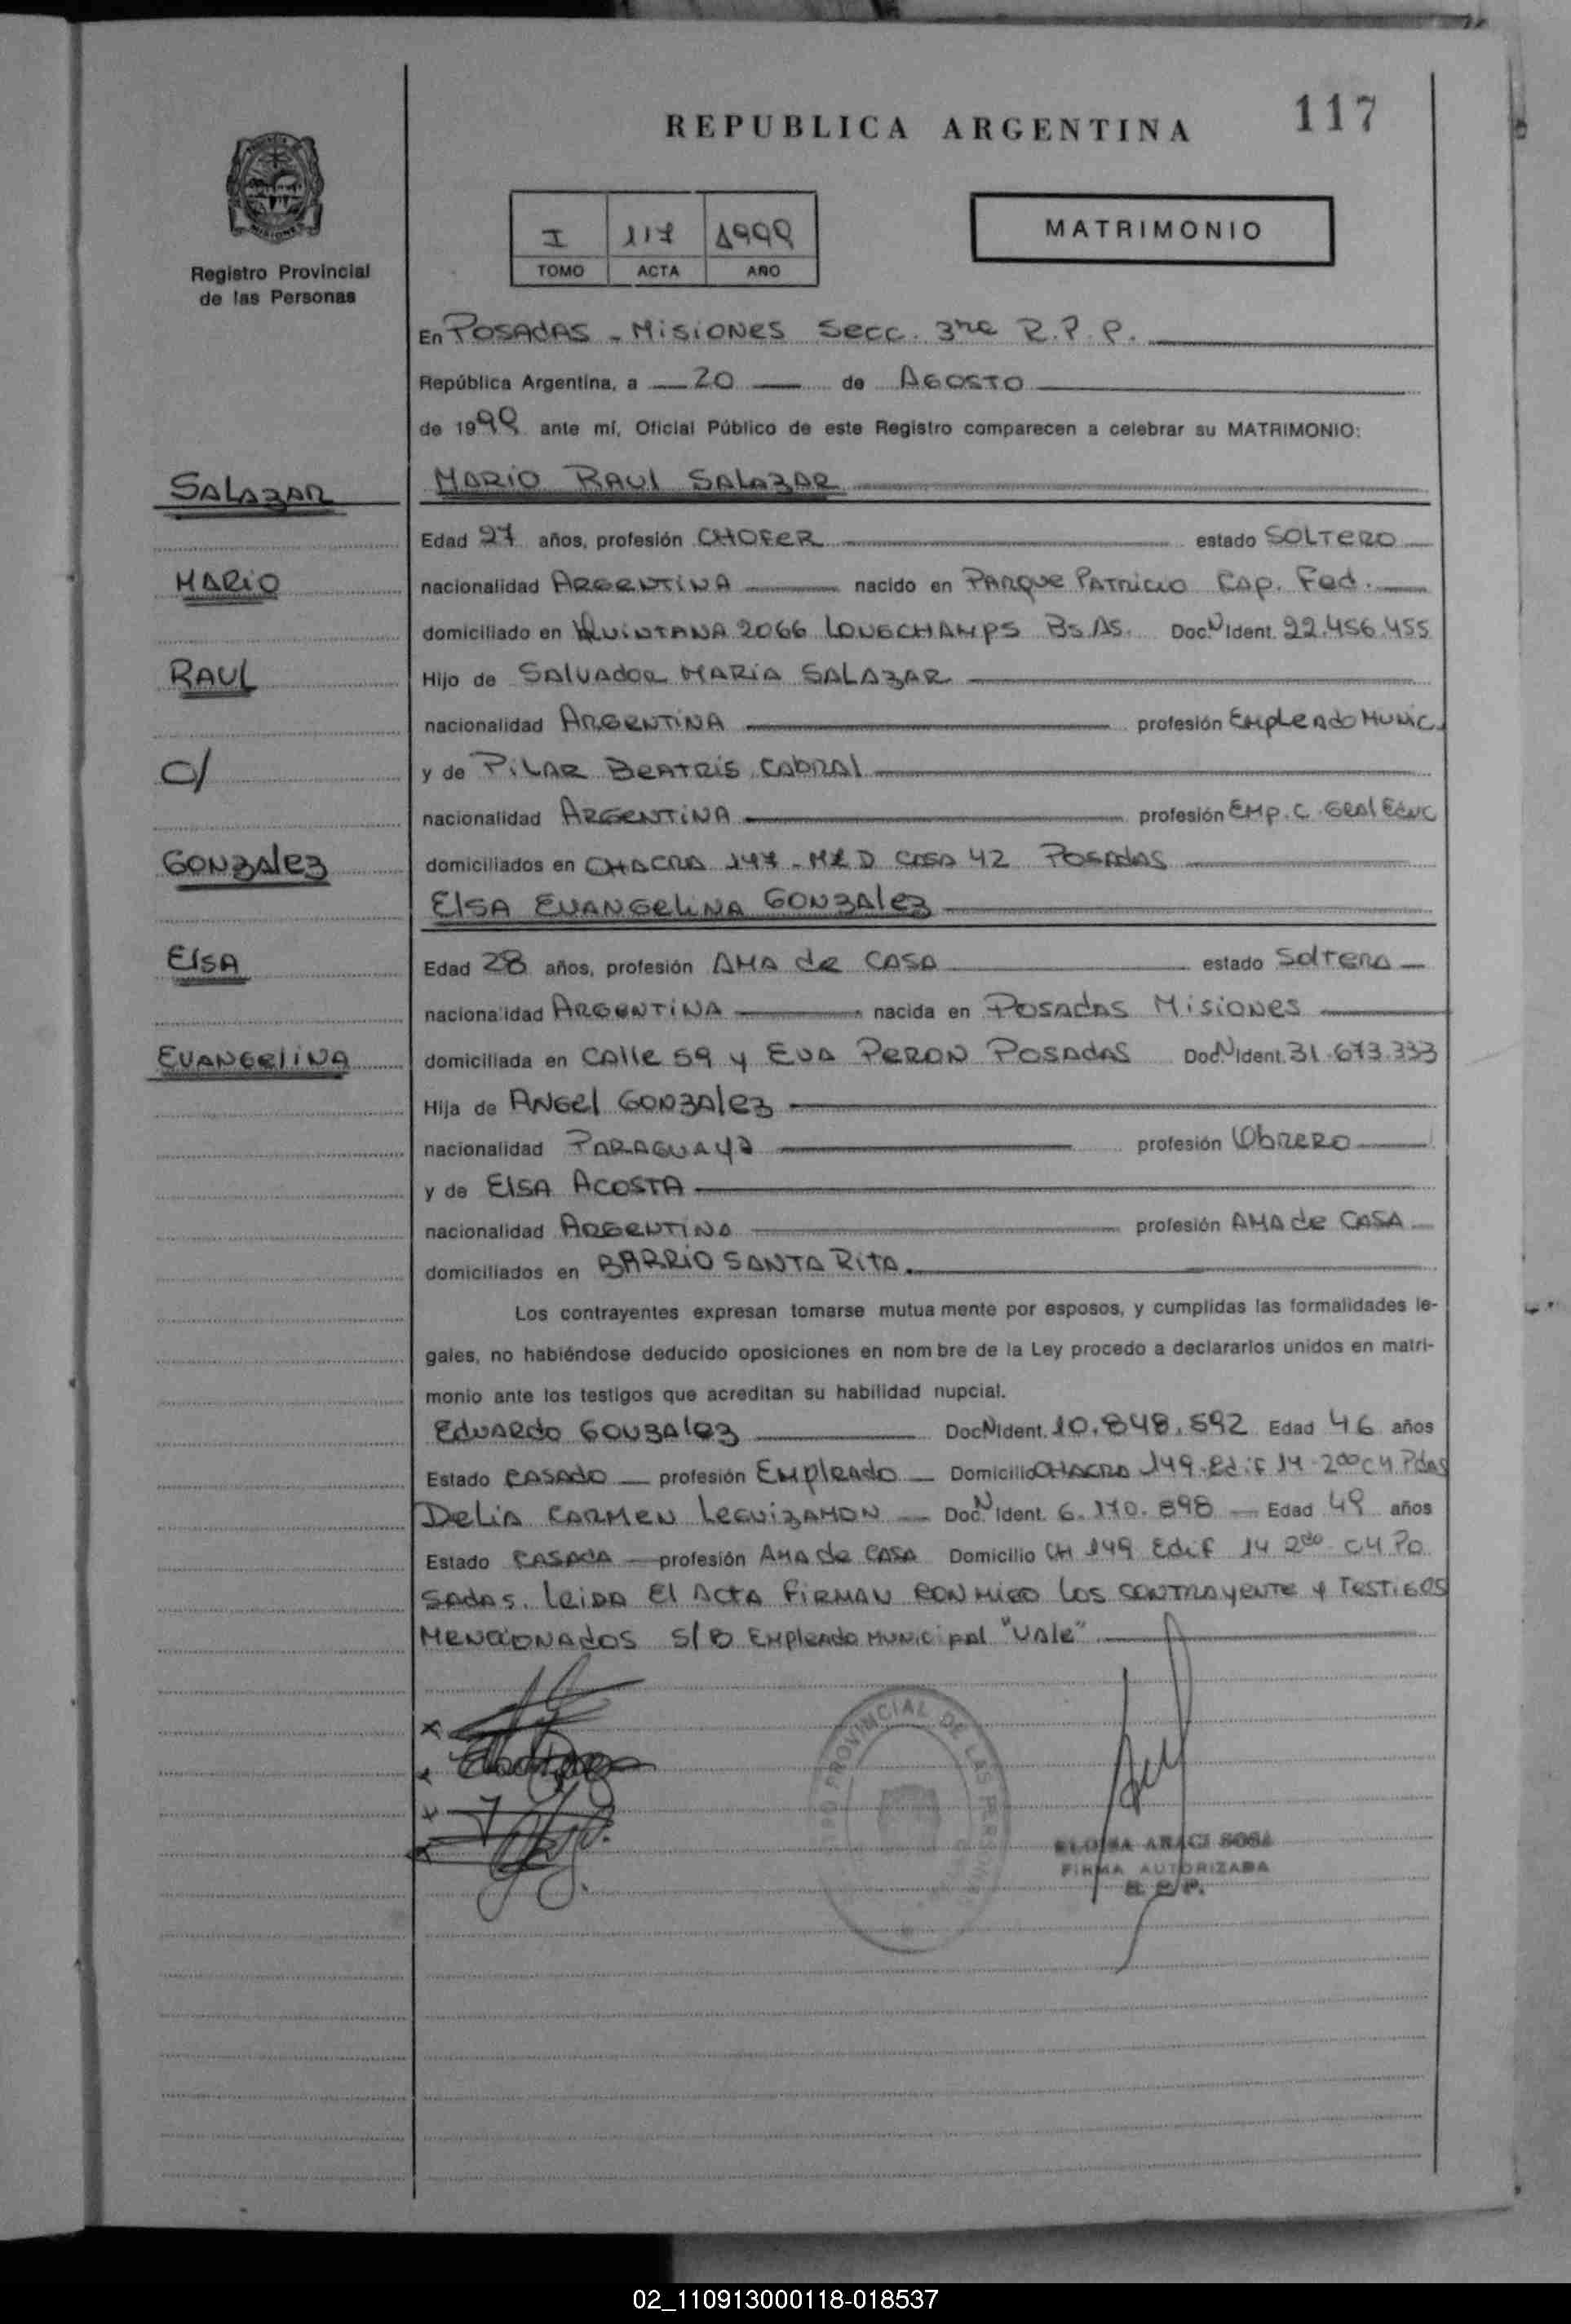 117
REPUBLICA ARGENTINA
MATRIMONIO
I 117 1999
TOMO ACTA AÑO
Registro Provincial
de las Personas
En POSADAS - MISIONES Secc. 3ra R.P.P.
República Argentina, a 20 de AGOSTO
de 1999 ante mí, Oficial Público de este Registro comparecen a celebrar su MATRIMONIO:
SALAZAR
MARIO
RAUL
C/
GONZALEZ
ELSA
EVANGELINA
MARIO RAUL SALAZAR
Edad 27 años, profesión CHOFER estado SOLTERO
nacionalidad ARGENTINA nacido en PARQUE PATRICIO CAP. Fed.
domiciliado en QUINTANA 2066 LONGCHAMPS Bs As. Doc. N Ident. 22.456.455
Hijo de SALVADOR MARIA SALAZAR
nacionalidad ARGENTINA profesión EMPLEADO MUNIC.
y de PILAR BEATRIS CABRAL
nacionalidad ARGENTINA profesión EMP. C. GRAL EDUC
domiciliados en CHACRA 147 - MZ D CASA 42 POSADAS
ELSA EVANGELINA GONZALEZ
Edad 28 años, profesión AMA de CASA estado SOLTERA
nacionalidad ARGENTINA nacida en POSADAS MISIONES
domiciliada en CALLE 59 y EVA PERON POSADAS Doc. N Ident. 31.673.333
Hija de ANGEL GONZALEZ
nacionalidad PARAGUAYA profesión OBRERO
y de ELSA ACOSTA
nacionalidad ARGENTINA profesión AMA de CASA
domiciliados en BARRIO SANTA RITA.
Los contrayentes expresan tomarse mutua mente por esposos, y cumplidas las formalidades le-
gales, no habiéndose deducido oposiciones en nom bre de la Ley procedo a declararlos unidos en matri-
monio ante los testigos que acreditan su habilidad nupcial.
EDUARDO GONZALEZ Doc N Ident. 10.848.592 Edad 46 años
Estado CASADO profesión EMPLEADO Domicilio CHACRA 149 - Edif 14 - 2do C4 Pdas
DELIA CARMEN LEGUIZAMON Doc. N Ident. 6.170.898 Edad 49 años
Estado CASADA profesión AMA de CASA Domicilio CH 149 Edif 14 2do C4 PO
SADAS. LEIDA EL ACTA FIRMAN CONMIGO LOS CONTRAYENTE Y TESTIGOS
MENCIONADOS S/B EMPLEADO MUNICIPAL "VALE"
PROVINCIAL DE LAS PERSONAS
ELOISA ARACI SOSA
FIRMA AUTORIZADA
R. P. P.
02_110913000118-018537